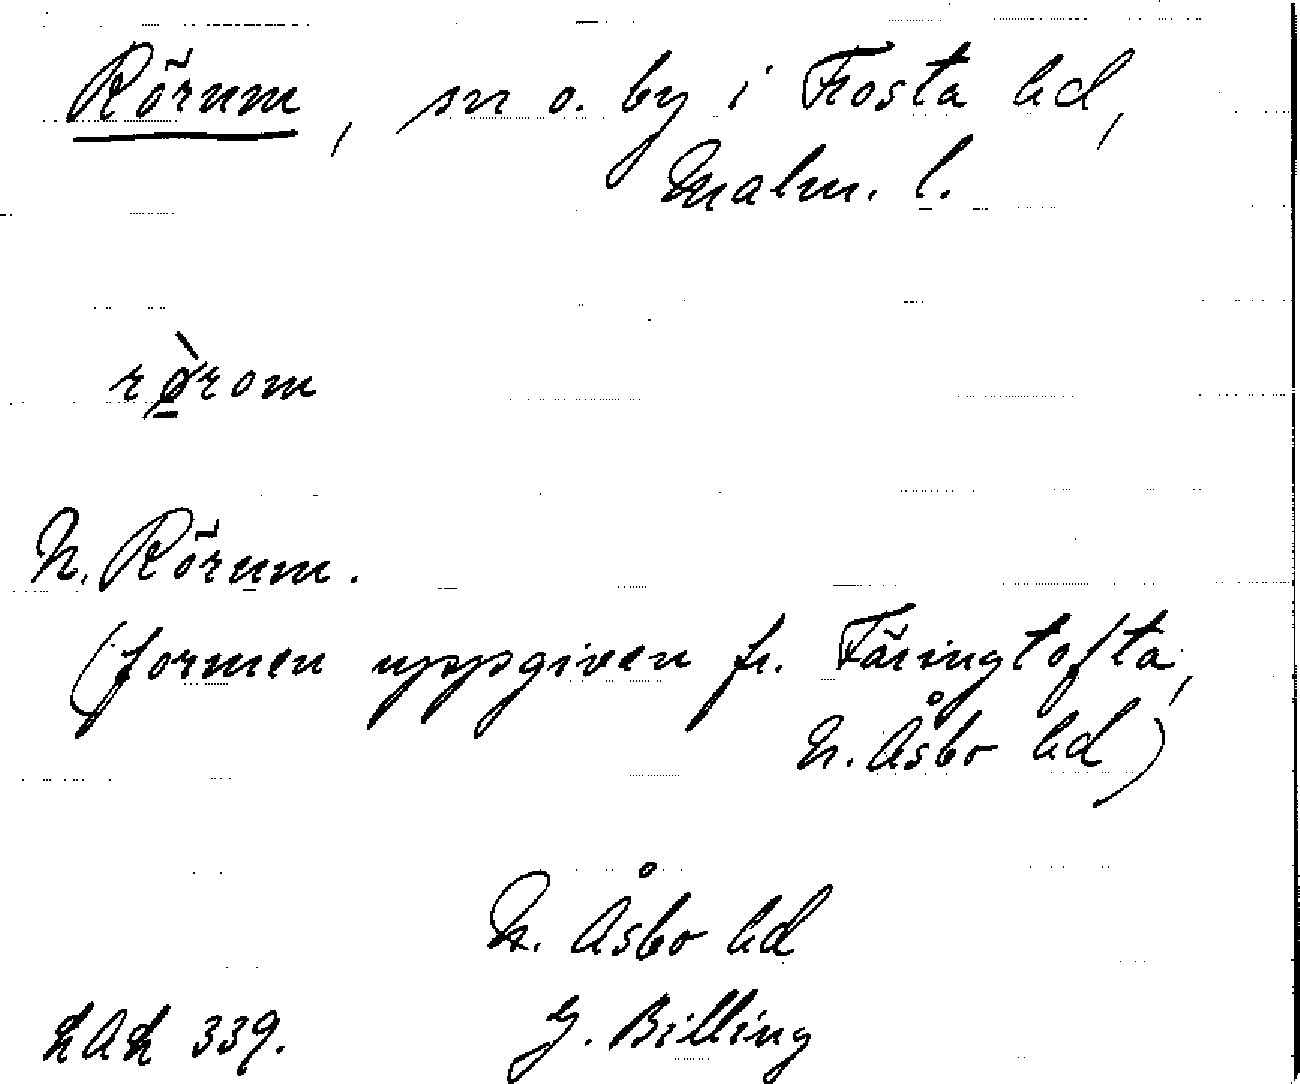 Rörum, sn o. by i Frosta hd,
Malm. l.
rø̱̀rom
N. Rörum.
(formen uppgiven fr. Färingtofta,
N. Åsbo hd)
N. Åsbo hd
LAL 339. G. Billing